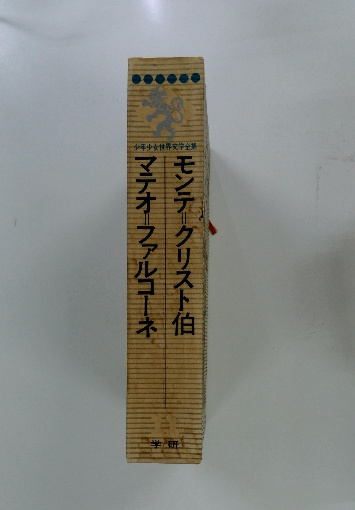 少年少女世界文学全集
モンテ＝クリスト伯
マテオ＝ファルコーネ
学研